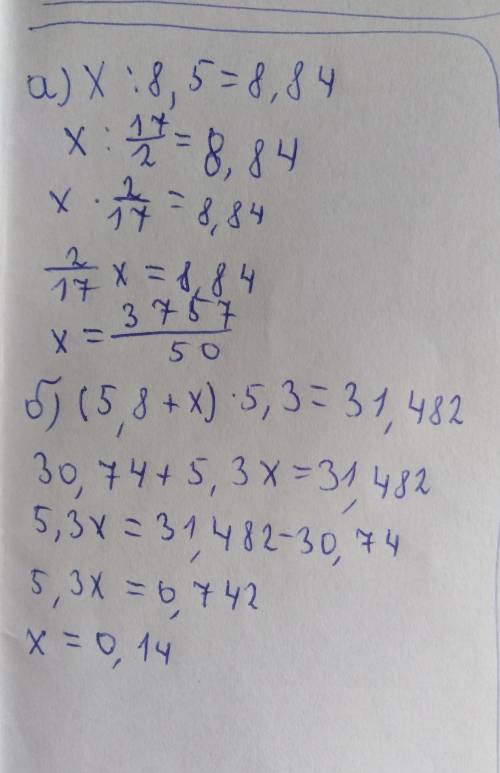 а) x : 8,5 = 8,84
x : 17/2 = 8,84
x · 2/17 = 8,84
2/17 x = 8,84
x = 3757/50
б) (5,8 + x) · 5,3 = 31,482
30,74 + 5,3x = 31,482
5,3x = 31,482 - 30,74
5,3x = 0,742
x = 0,14